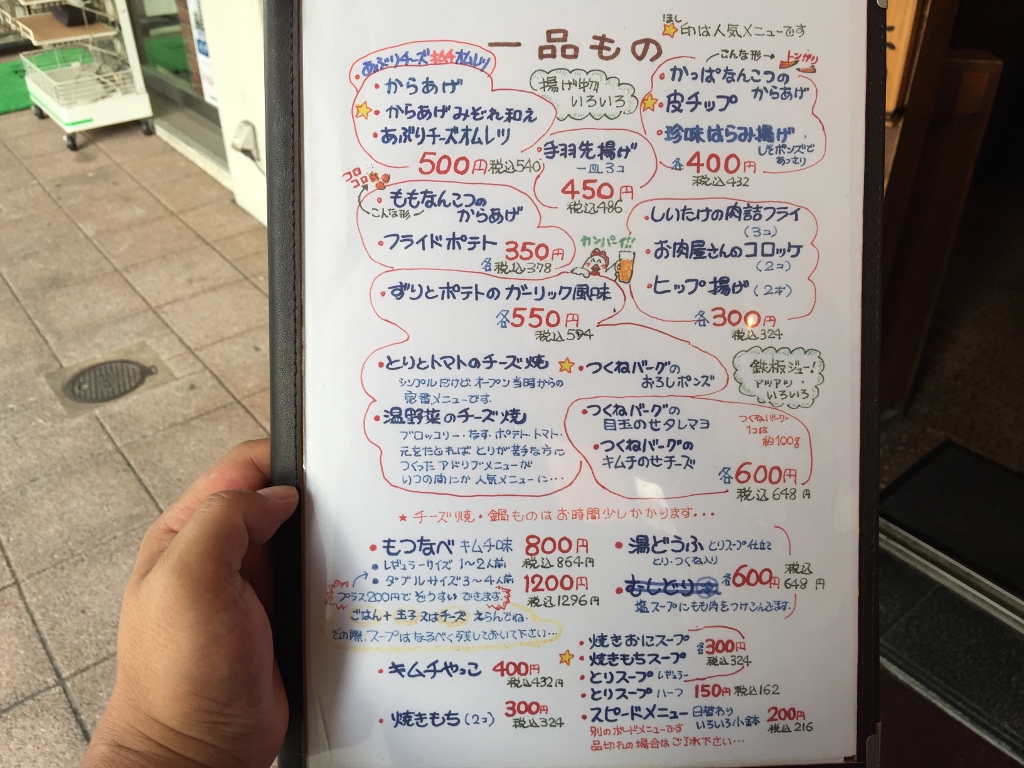 ほし
☆印は人気メニューです
一品もの
あぶりチーズオムレツ
・からあげ
☆・からあげみぞれ和え
・あぶりチーズオムレツ
500円 税込540
揚げ物
いろいろ
・手羽先揚げ
一皿3コ
450円
税込486
こんな形→
・かっぱなんこつの
からあげ
☆・皮チップ
・珍味はらみ揚げ
しそポンズで
あっさり
各400円
税込432
コロ
コロ
こんな形
・ももなんこつの
からあげ
・フライドポテト
各350円
税込378
カンパイ!!
・しいたけの肉詰フライ
(3コ)
・お肉屋さんのコロッケ
(2コ)
・ヒップ揚げ(2本)
各300円
税込324
・ずりとポテトのガーリック風味
各550円
税込594
・とりとトマトのチーズ焼
シンプルだけど オープン当時からの
定番メニューです.
・温野菜のチーズ焼
ブロッコリー・なす・ポテト・トマト・
元をただせば とりが苦手な方に
つくった アドリブメニューが
いつの間にか 人気メニューに…
☆・つくねバーグの
おろしポンズ
鉄板ジュー!
アツアツ・
いろいろ
・つくねバーグの
目玉のせタレマヨ
・つくねバーグの
キムチのせチーズ
つくねバーグ
1コは
約100g
各600円
税込648円
★チーズ焼・鍋ものはお時間少しかかります・・・
・もつなべ キムチ味 800円
・レギュラーサイズ 1〜2人前 税込864円
・ダブルサイズ 3〜4人前 1200円
税込1296円
プラス200円で ぞうすい できます.
ごはん+玉子 又はチーズ えらんでね.
その際、スープはなるべく残しておいて下さい…
・湯どうふ とりスープ仕立て
とり・つくね入り
・むしとり
塩スープにもも肉をつけこんでます.
各600円 税込
648円
・キムチやっこ 400円
税込432円
・焼きもち(2コ) 300円
税込324
・焼きおにスープ
☆・焼きもちスープ
・とりスープ レギュラー
各300円
税込324
・とりスープ ハーフ 150円 税込162
・スピードメニュー 日替わり
いろいろ小鉢
200円
税込216
別のボードメニューです
品切れの場合はご了承下さい…